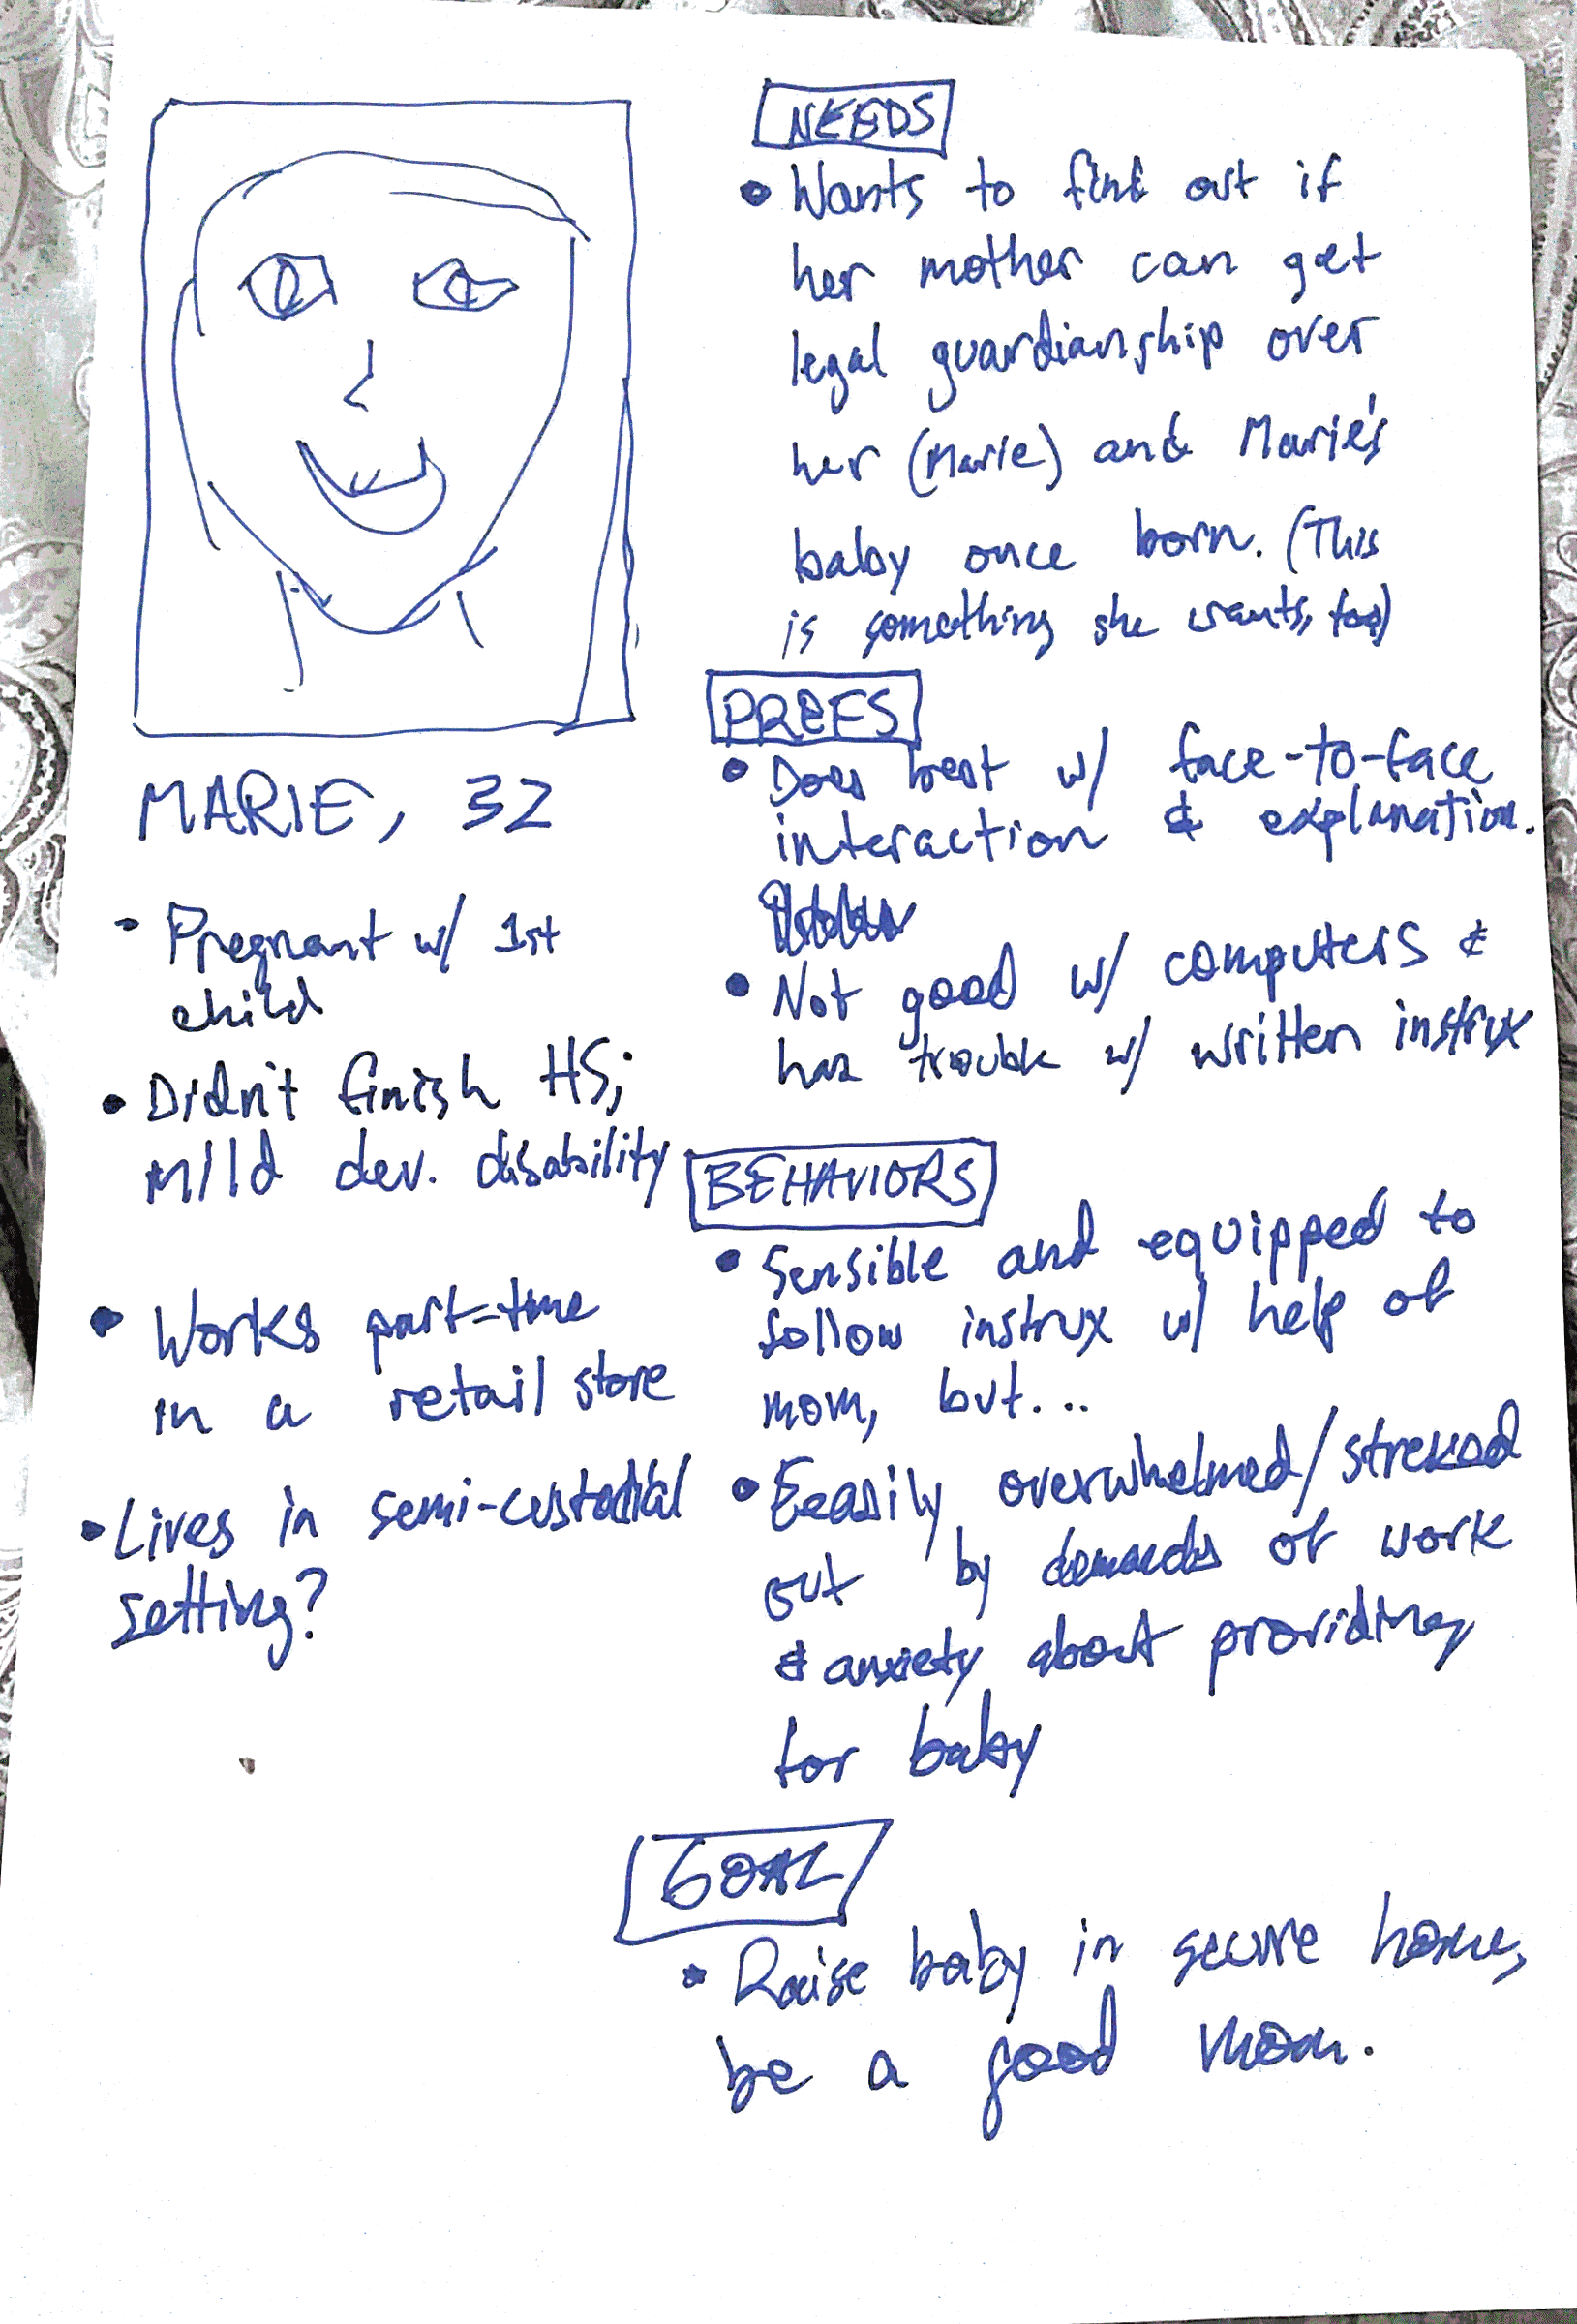 MARIE, 32
- Pregnant w/ 1st
child
• Didn't finish HS;
mild dev. disability
• Works part-time
in a retail store
• Lives in semi-custodial
setting?
NEEDS
• Wants to find out if
her mother can get
legal guardianship over
her (Marie) and Marie's
baby once born. (This
is something she wants, too)
PREFS
• Does best w/ face-to-face
interaction & explanation.
• Not good w/ computers &
has trouble w/ written instrux
BEHAVIORS
• Sensible and equipped to
follow instrux w/ help of
mom, but...
• Easily overwhelmed/stressed
out by demands of work
& anxiety about providing
for baby
GOAL
• Raise baby in secure home,
be a good mom.